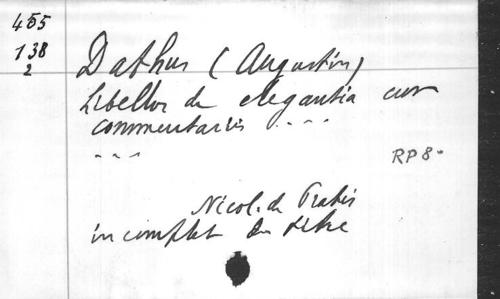 455
138
2
Dathus (Augustin)
Libellus de elegantia cum
commentariis ....
---
RP 8-
Nicol. de Pratis
incomplet du titre